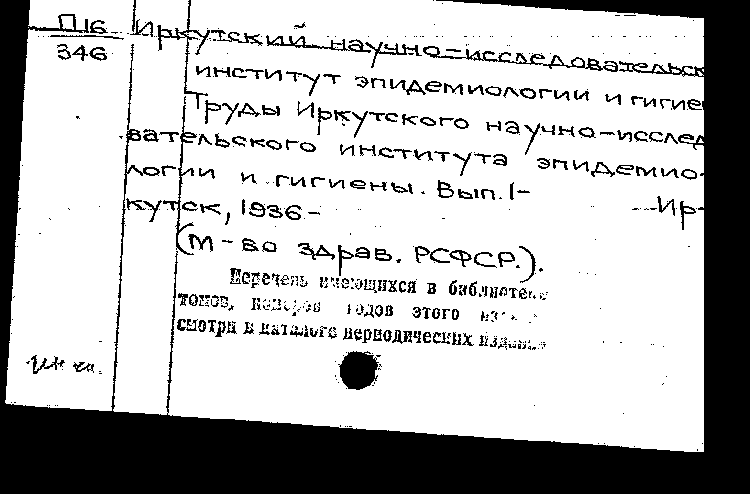 П16 Иркутский научно-исследовательск
346
институт эпидемиологии и гигие
Труды Иркутского научно-исслед
вательского института эпидемио-
логии и гигиены. Вып. 1- Ир-
кутск, 1936-
(М-во здрав. РСФСР.).
Перечень имеющихся в библиотеке
томов, номеров годов этого
смотри в каталоге периодических издании